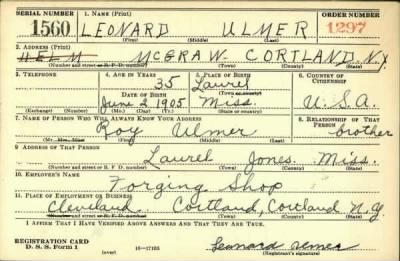 SERIAL NUMBER 1. NAME (Print) ORDER NUMBER
1560 LEONARD ULMER 1297
(First) (Middle) (Last)
2. ADDRESS (Print)
HELM McGRAW CORTLAND N.Y.
(Number and street or R. F. D. number) (Town) (County) (State)
3. TELEPHONE 4. AGE IN YEARS 5. PLACE OF BIRTH 6. COUNTRY OF CITIZENSHIP
35 Laurel
DATE OF BIRTH (Town or county)
June 2 1905 Miss. U.S.A.
(Exchange) (Number) (Mo.) (Day) (Yr.) (State or country)
7. NAME OF PERSON WHO WILL ALWAYS KNOW YOUR ADDRESS 8. RELATIONSHIP OF THAT PERSON
Roy Ulmer brother
(Mr., Mrs., Miss) (First) (Middle) (Last)
9. ADDRESS OF THAT PERSON
Laurel Jones Miss.
(Number and street or R. F. D. number) (Town) (County) (State)
10. EMPLOYER'S NAME
Forging Shop
11. PLACE OF EMPLOYMENT OR BUSINESS
Cleveland Cortland, Cortland N.Y.
(Number and street or R. F. D. number) (Town) (County) (State)
I AFFIRM THAT I HAVE VERIFIED ABOVE ANSWERS AND THAT THEY ARE TRUE.
REGISTRATION CARD
D. S. S. Form 1 (over) 16—17105 Leonard Ulmer
(Registrant's signature)